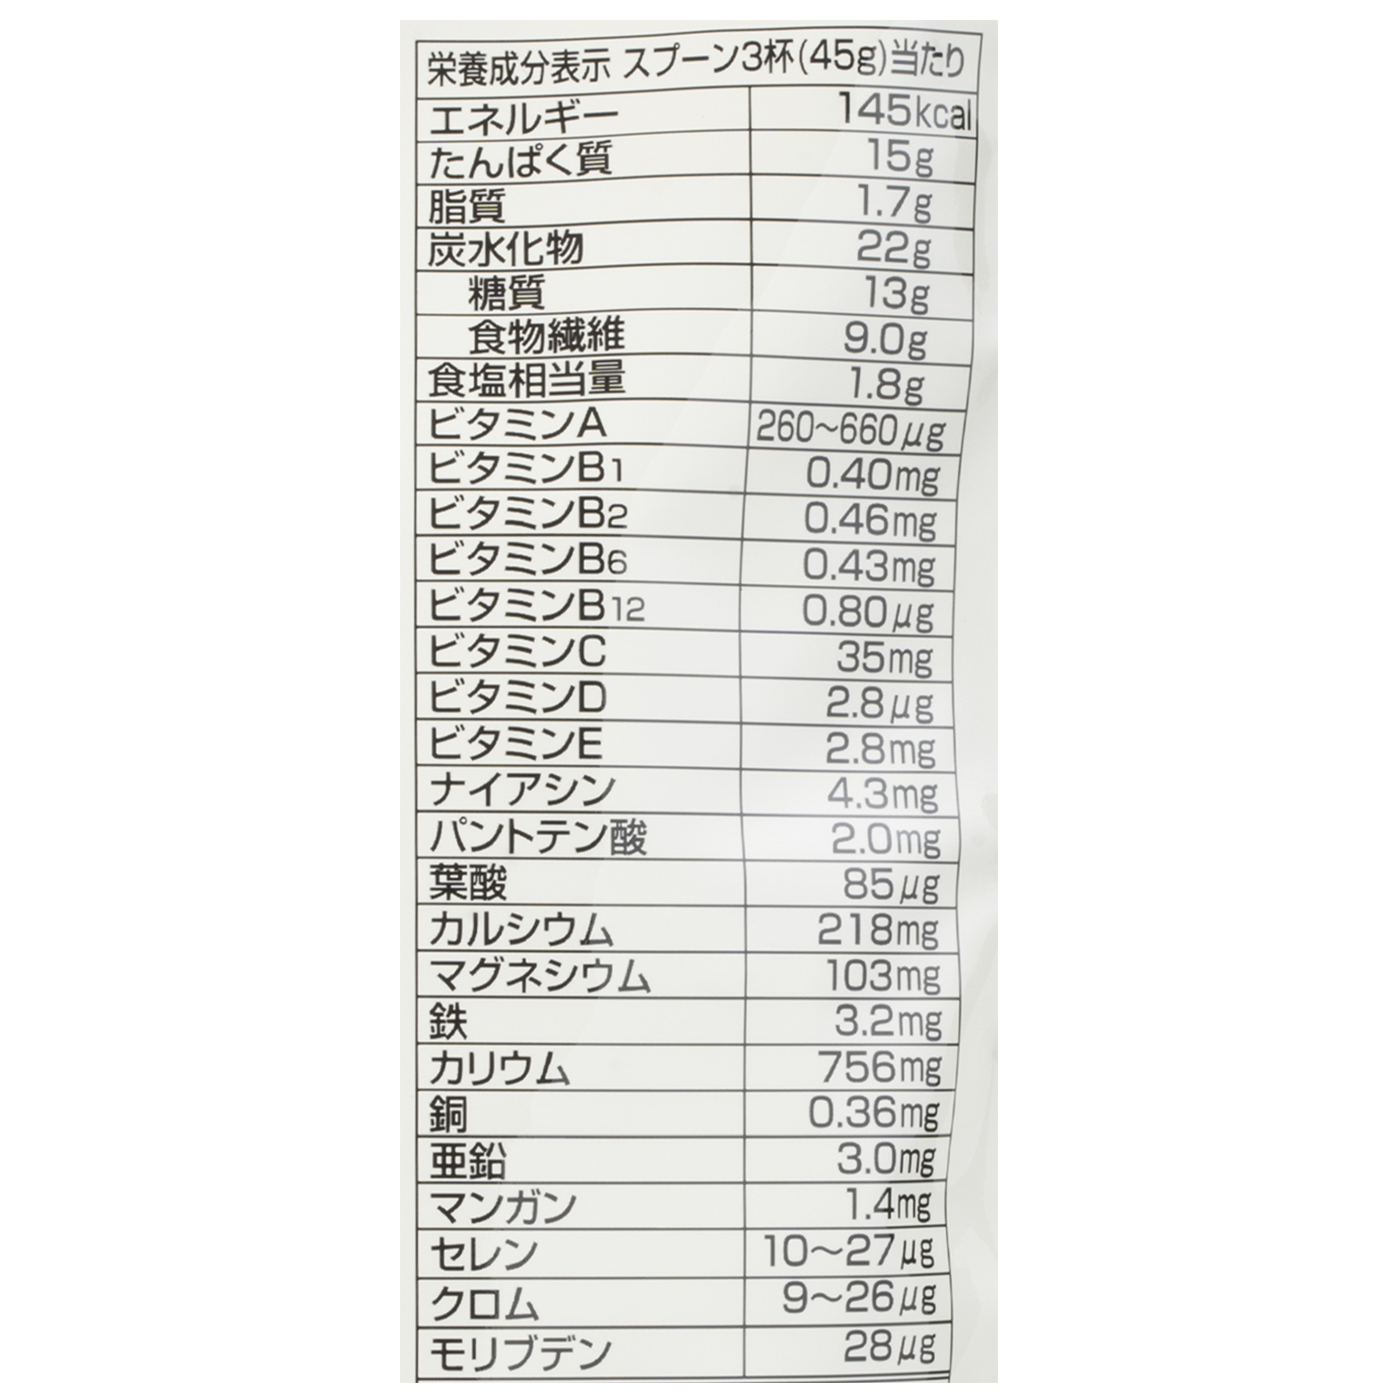 栄養成分表示 スプーン3杯(45g)当たり
エネルギー 145kcal
たんぱく質 15g
脂質 1.7g
炭水化物 22g
糖質 13g
食物繊維 9.0g
食塩相当量 1.8g
ビタミンA 260～660μg
ビタミンB1 0.40mg
ビタミンB2 0.46mg
ビタミンB6 0.43mg
ビタミンB12 0.80μg
ビタミンC 35mg
ビタミンD 2.8μg
ビタミンE 2.8mg
ナイアシン 4.3mg
パントテン酸 2.0mg
葉酸 85μg
カルシウム 218mg
マグネシウム 103mg
鉄 3.2mg
カリウム 756mg
銅 0.36mg
亜鉛 3.0mg
マンガン 1.4mg
セレン 10～27μg
クロム 9～26μg
モリブデン 28μg